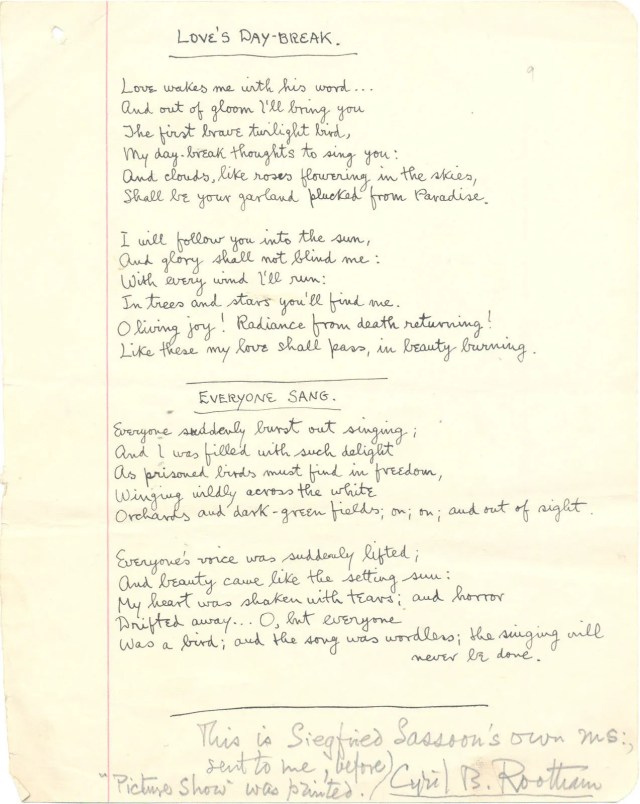 LOVE'S DAY-BREAK.
9
Love wakes me with his word...
And out of gloom I'll bring you
The first brave twilight bird,
My day-break thoughts to sing you:
And clouds, like roses flowering in the skies,
Shall be your garland plucked from Paradise.
I will follow you into the sun,
And glory shall not blind me:
With every wind I'll run:
In trees and stars you'll find me.
O living joy! Radiance from death returning!
Like these my love shall pass, in beauty burning.
EVERYONE SANG.
Everyone suddenly burst out singing;
And I was filled with such delight
As prisoned birds must find in freedom,
Winging wildly across the white
Orchards and dark-green fields; on; on; and out of sight.
Everyone's voice was suddenly lifted;
And beauty came like the setting sun:
My heart was shaken with tears; and horror
Drifted away... O, but everyone
Was a bird; and the song was wordless; the singing will
never be done.
This is Siegfried Sassoon's own ms:,
sent to me, before)
"Picture Show" was printed. Cyril B. Rootham